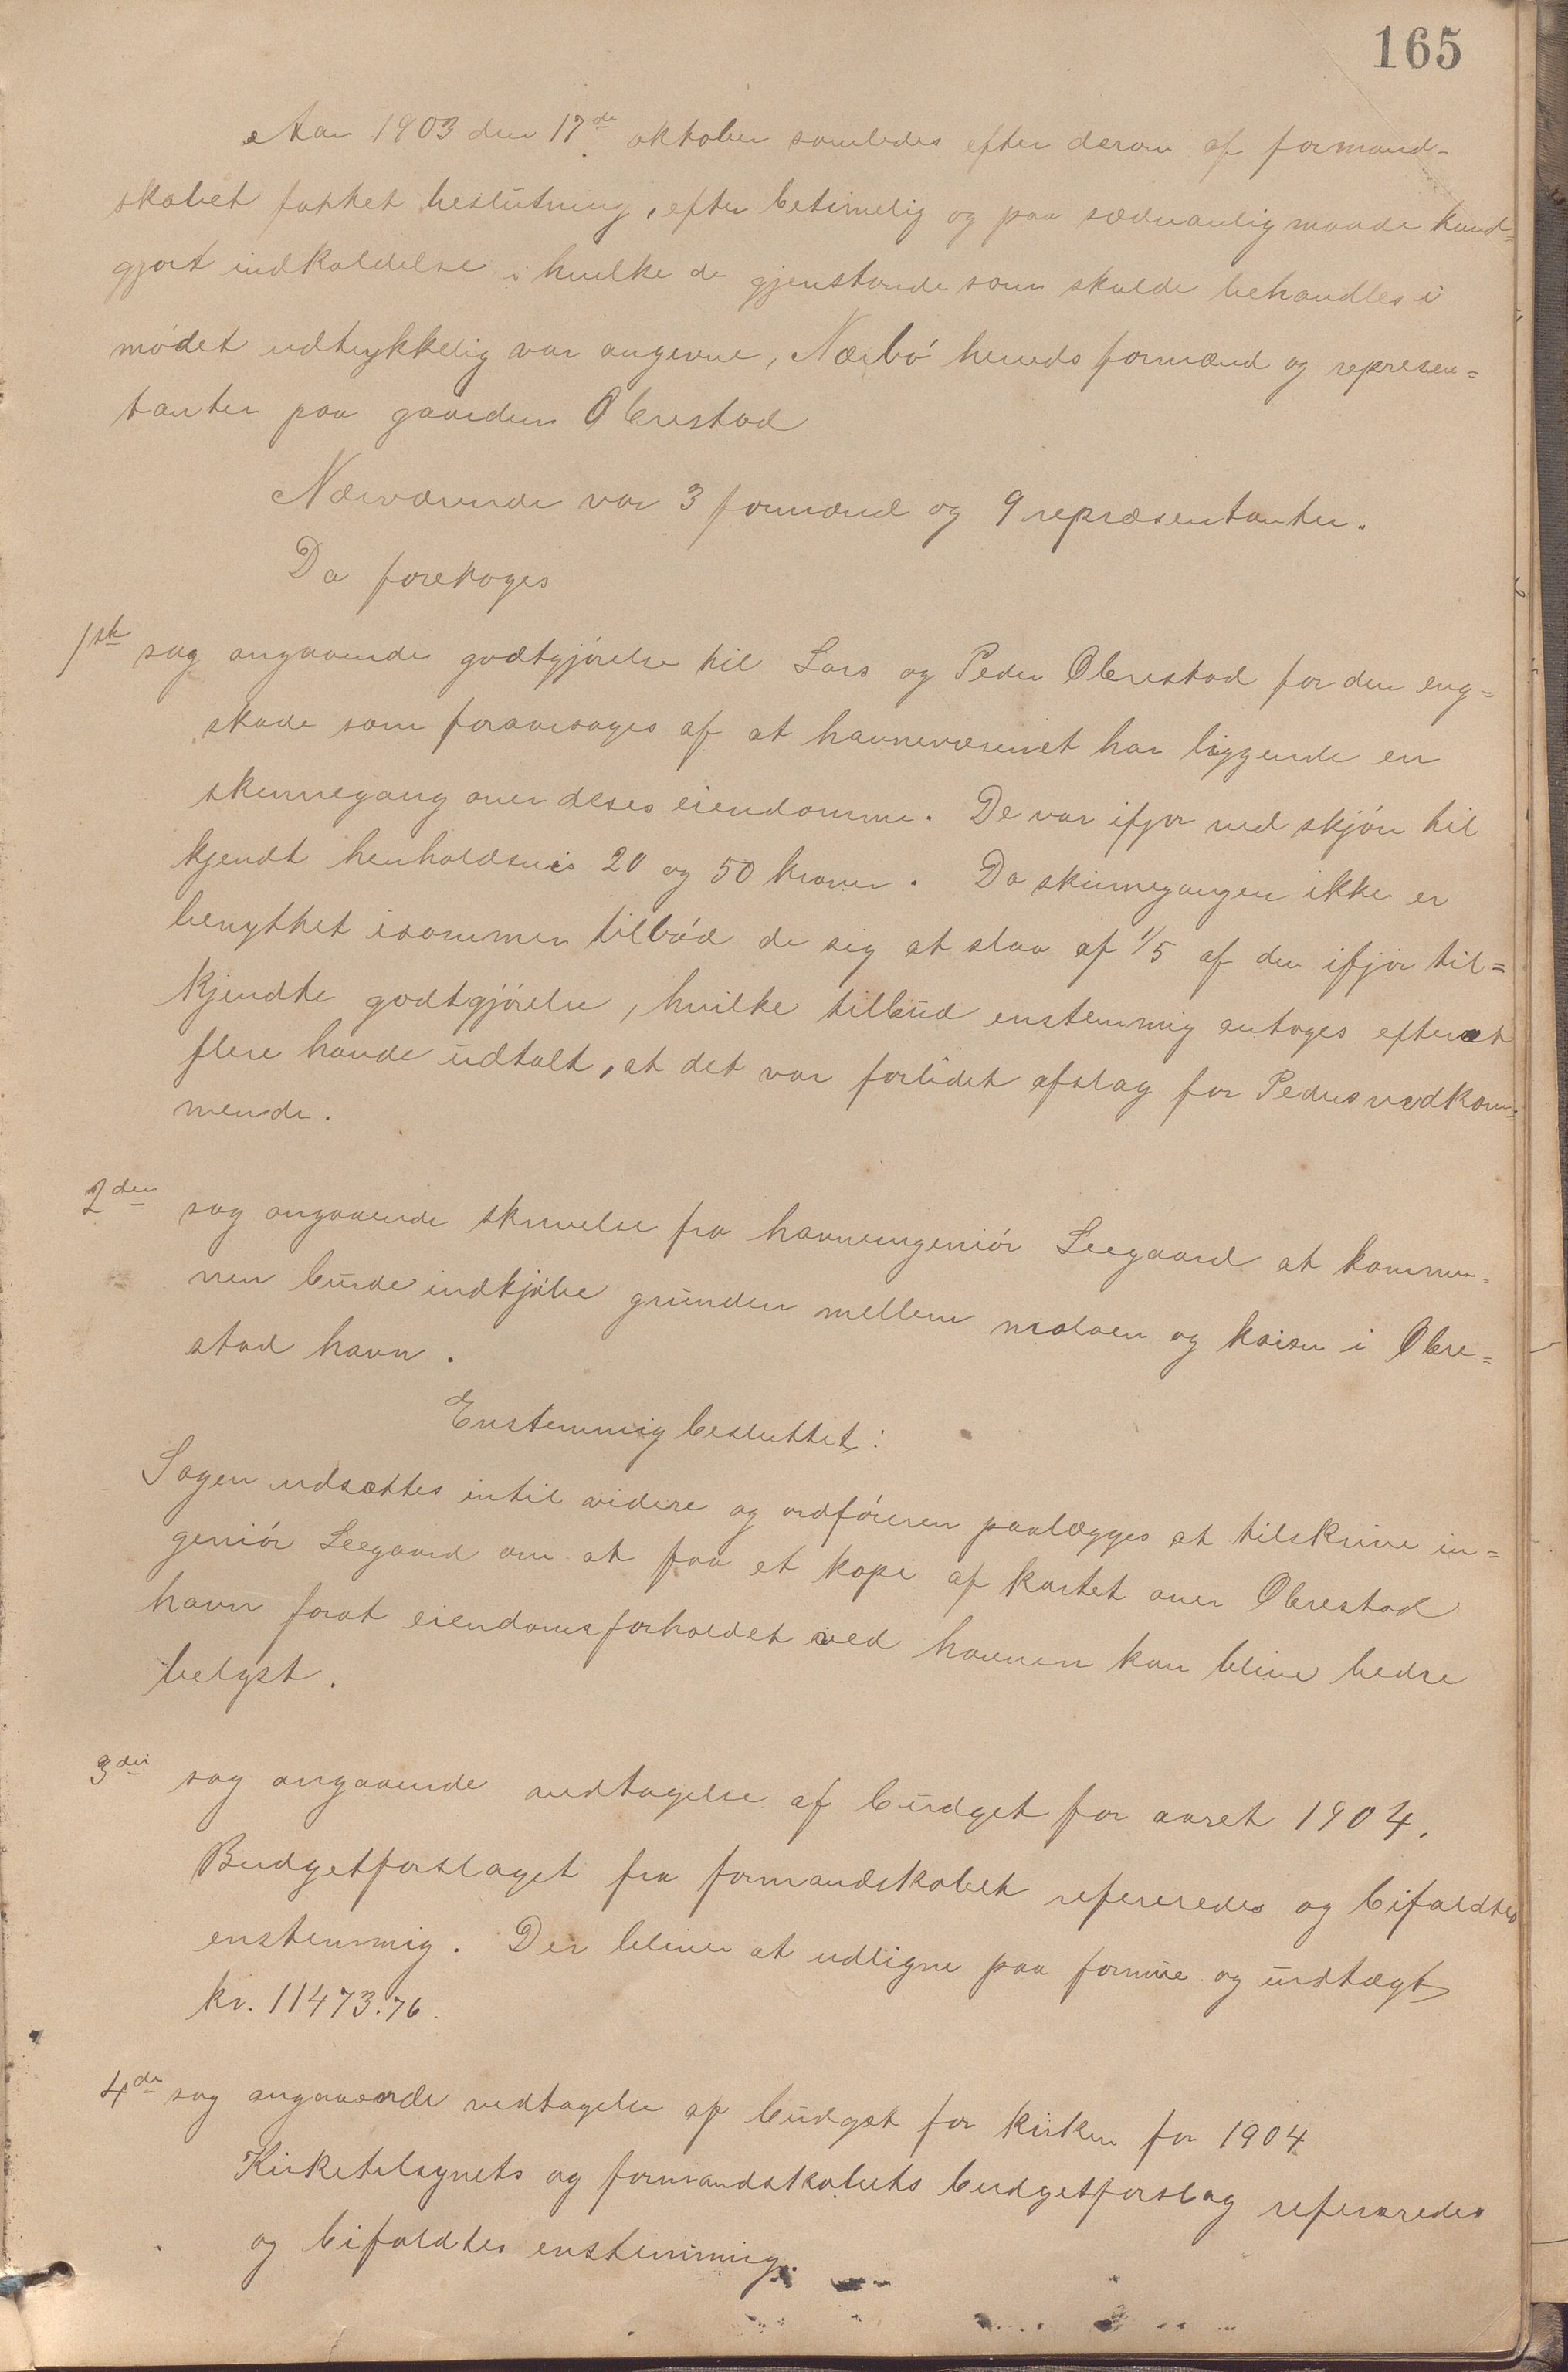 165
Aar 1903 den 17de oktober samledes efter derom af formand-
skabet fattet beslutning, efter betimelig og paa sædvanlig maade kund=
gjort indkaldelse i hvilke de gjenstande som skulde behandles i
mødet udtrykkelig var angivne, Nærbø herreds formænd og represen=
tanter paa gaarden Obrestad
Nærværende var 3 formænd og 9 repræsentanter.
Da foretoges
1ste sag angaaende godtgjørelse til Lars og Peder Obrestad for den eng=
skade som foraarsages af at havnevæsenet har liggende en
skinnegang over deres eiendomme. De var ifjor ved skjøn til
kjendt henholdsvis 20 og 50 kroner. Da skinnegangen ikke er
benyttet isommer tilbød de sig at slaa af 1/5 af den ifjor til=
kjendte godtgjørelse, hvilke tilbud enstemmig antoges efterat
flere havde udtalt, at det var forlidet afslag for Peders vedkom=
mende.
2den sag angaaende skrivelse fra havneingeniør Leegaard at kommu=
nen burde indkjøbe grunden mellem moloen og kaien i Obre=
stad havn.
Enstemmig besluttet:
Sagen udsættes intil videre og ordføreren paalægges at tilskrive in=
geniør Leegaard om at faa et kopi af kartet over Obrestad
havn forat eiendomsforholdet ved havnen kan blive bedre
belyst.
3die sag angaaende vedtagelse af budget for aaret 1904.
Budgetforslaget fra formandskabet refereredes og bifaldtes
enstemmig. Der bliver at udligne paa formue og indtægt
kr. 11473.76.
4de sag angaaende vedtagelse af budget for kirken for 1904
Kirketilsynets og formandskabets budgetforslag refereredes
og bifaldtes enstemmig.